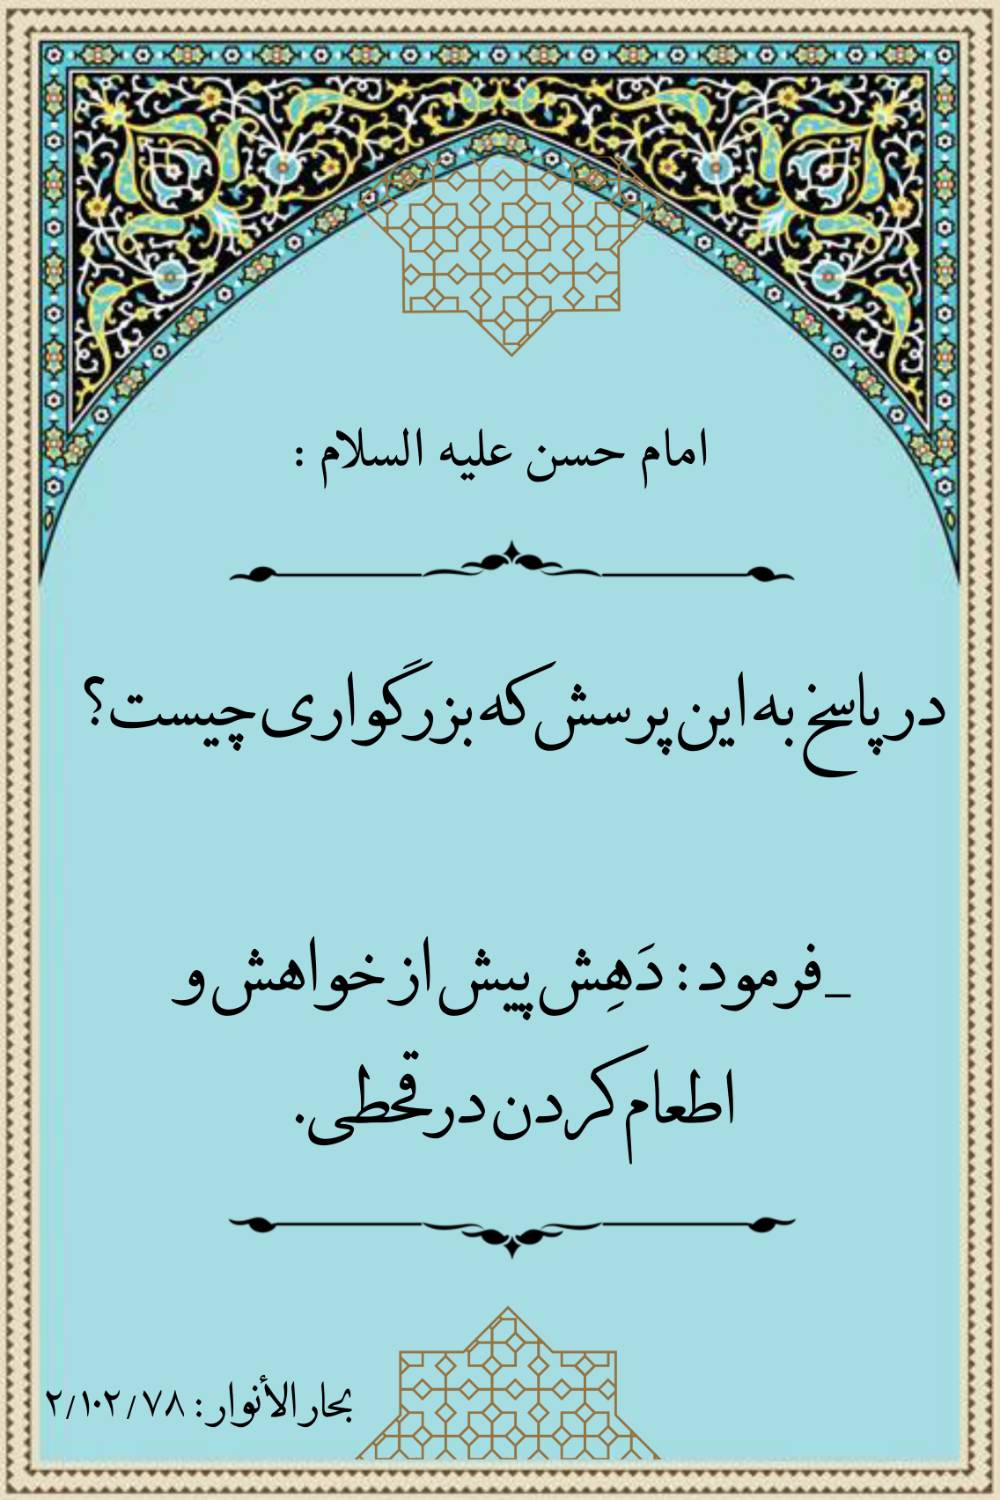 امام حسن علیه السلام :
در پاسخ به این پرسش که بزرگواری چیست؟
_فرمود : دَهِش پیش از خواهش و
اطعام کردن در قحطی.
بحار الأنوار : ۲/۱۰۲/۷۸